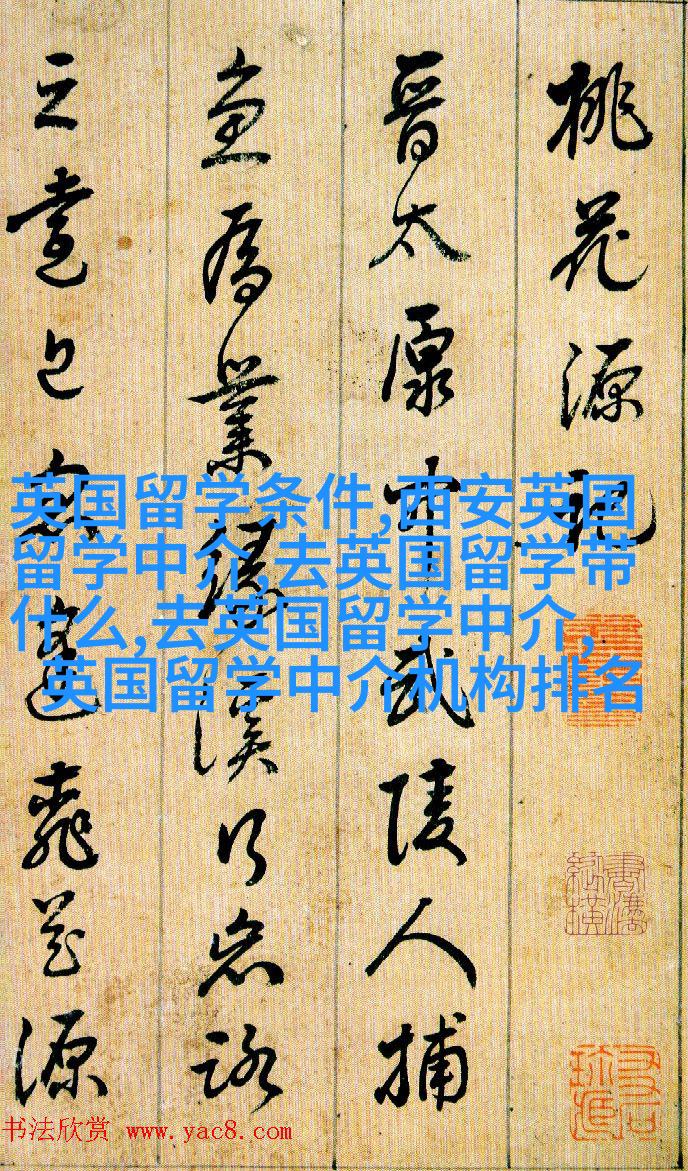 桃花源記
晉太原中武陵人捕
魚為業緣溪行忘路
之遠近忽逢桃花源
英国留学条件,西安英国
留学中介,去英国留学带
什么,去英国留学中介,
英国留学中介机构排名
书法欣赏 www.yac8.com